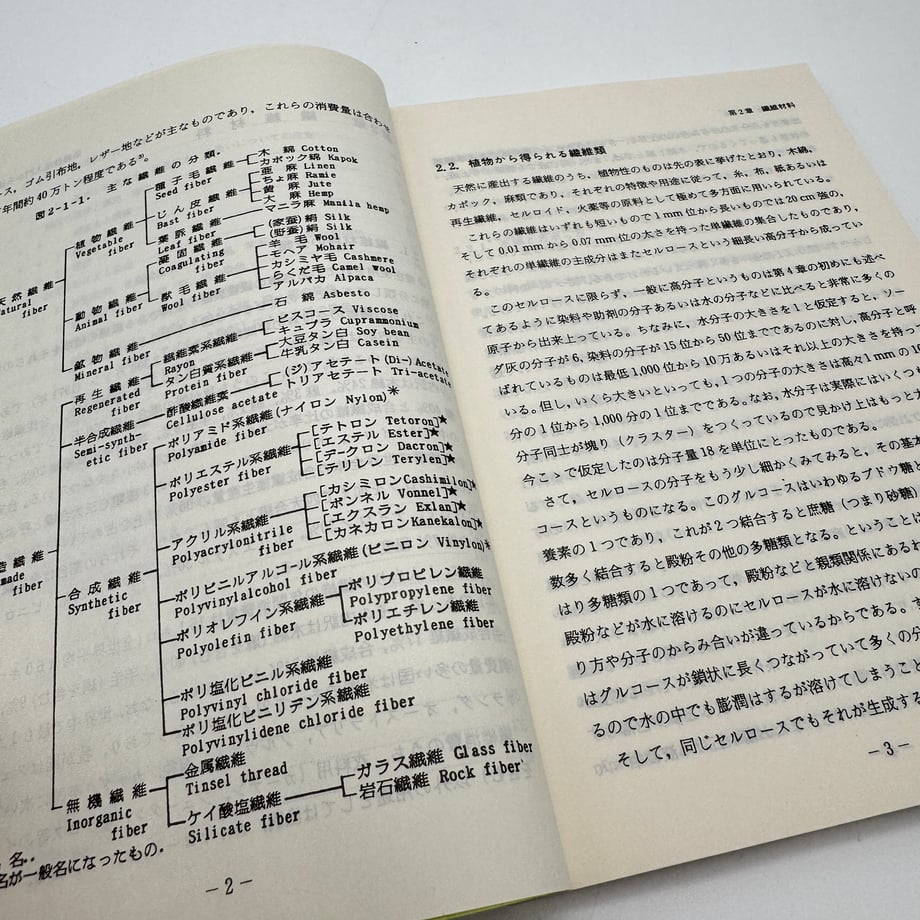 ス，ゴム引布地，レザー地などが主なものであり，これらの消費量は合わせ
年間約40万トン程度である³⁾。
図2-1-1. 主な繊維の分類.
天然繊維
Natural
fiber
植物繊維
Vegetable
fiber
種子毛繊維
Seed fiber
木綿 Cotton
カポック綿 Kapok
じん皮繊維
Bast fiber
亜麻 Linen
ちょ麻 Ramie
黄麻 Jute
大麻 Hemp
葉脈繊維
Leaf fiber
マニラ麻 Manila hemp
動物繊維
Animal fiber
凝固繊維
Coagulating
fiber
(家蚕)絹 Silk
(野蚕)絹 Silk
獣毛繊維
Wool fiber
羊毛 Wool
モヘア Mohair
カシミヤ毛 Cashmere
らくだ毛 Camel wool
アルパカ Alpaca
鉱物繊維
Mineral fiber
石綿 Asbesto
造繊維
made
fiber
再生繊維
Regenerated
fiber
繊維素系繊維
Rayon
ビスコース Viscose
キュプラ Cuprammonium
タン白質系繊維
Protein fiber
大豆タン白 Soy bean
牛乳タン白 Casein
半合成繊維
Semi-synth-
etic fiber
酢酸繊維素
Cellulose acetate
(ジ)アセテート(Di-)Acetate
トリアセテート Tri-acetate
合成繊維
Synthetic
fiber
ポリアミド系繊維(ナイロン Nylon)*
Polyamide fiber
ポリエステル系繊維
Polyester fiber
[テトロン Tetoron]★
[エステル Ester]★
[デークロン Dacron]★
[テリレン Terylen]★
アクリル系繊維
Polyacrylonitrile
fiber
[カシミロンCashimilon]★
[ボンネル Vonnel]★
[エクスラン Exlan]★
[カネカロンKanekalon]★
ポリビニルアルコール系繊維(ビニロン Vinylon)*
Polyvinylalcohol fiber
ポリオレフィン系繊維
Polyolefin fiber
ポリプロピレン繊維
Polypropylene fiber
ポリエチレン繊維
Polyethylene fiber
ポリ塩化ビニル系繊維
Polyvinyl chloride fiber
ポリ塩化ビニリデン系繊維
Polyvinylidene chloride fiber
無機繊維
Inorganic
fiber
金属繊維
Tinsel thread
ケイ酸塩繊維
Silicate fiber
ガラス繊維 Glass fiber
岩石繊維 Rock fiber
名．
名が一般名になったもの．
－2－
第2章 繊維材料
2.2. 植物から得られる繊維類
天然に産出する繊維のうち，植物性のものは先の表に挙げたとおり，木綿，
カポック，麻類であり，それぞれの特徴や用途に従って，糸，布，紙あるいは
再生繊維，セルロイド，火薬等の原料として極めて多方面に用いられている。
これらの繊維はいずれも短いもので1mm位から長いものでは20cm強の，
そして0.01mmから0.07mm位の太さを持った単繊維の集合したものであり，
それぞれの単繊維の主成分はまたセルロースという細長い高分子から成ってい
る。
このセルロースに限らず，一般に高分子というものは第4章の初めにも述べ
てあるように染料や助剤の分子あるいは水の分子などに比べると非常に多くの
原子から出来上っている。ちなみに，水分子の大きさを1と仮定すると，ソー
ダ灰の分子が6，染料の分子が15位から50位までであるのに対し，高分子と呼
ばれているものは最低1,000位から10万あるいはそれ以上の大きさを持って
いる。但し，いくら大きいといっても，1つの分子の大きさは高々1mmの10
分の1位から1,000分の1位までである。なお，水分子は実際にはいくつも
分子同士が塊り（クラスター）をつくっているので見かけ上はもっと大
今こゝで仮定したのは分子量18を単位にとったものである。
さて，セルロースの分子をもう少し細かくみてみると，その基本
コースというものになる。このグルコースはいわゆるブドウ糖と
養素の1つであり，これが2つ結合すると庶糖（つまり砂糖）
数多く結合すると殿粉その他の多糖類となる。ということは
はり多糖類の1つであって，殿粉などと親類関係にあるわ
殿粉などが水に溶けるのにセルロースが水に溶けないの
り方や分子のからみ合いが違っているからである。す
はグルコースが鎖状に長くつながっていて多くの分
るので水の中でも膨潤はするが溶けてしまうこと
そして，同じセルロースでもそれが生成する
－3－